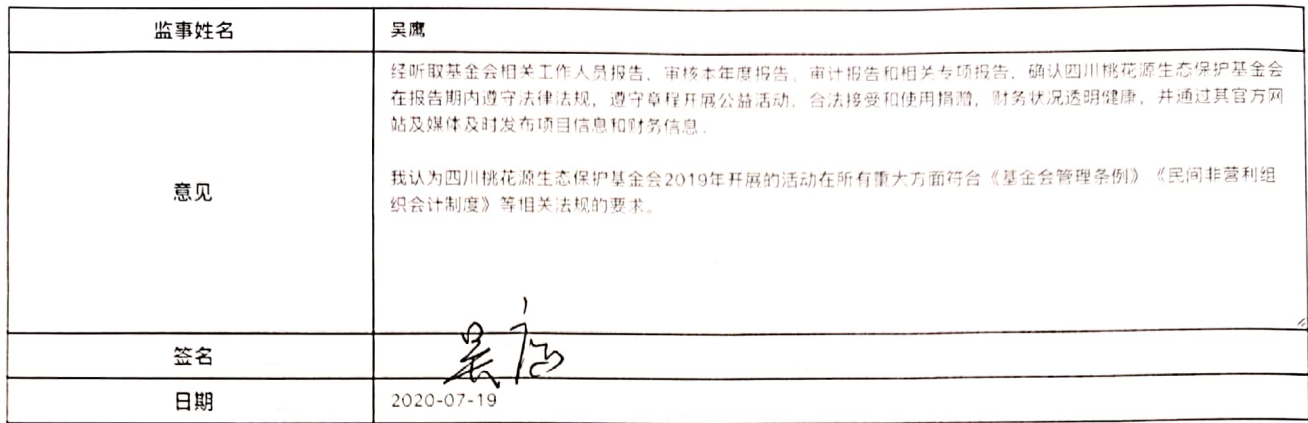 监事姓名 吴鹰
意见
经听取基金会相关工作人员报告、审核本年度报告、审计报告和相关专项报告，确认四川桃花源生态保护基金会
在报告期内遵守法律法规，遵守章程开展公益活动，合法接受和使用捐赠，财务状况透明健康，并通过其官方网
站及媒体及时发布项目信息和财务信息。
我认为四川桃花源生态保护基金会2019年开展的活动在所有重大方面符合《基金会管理条例》《民间非营利组
织会计制度》等相关法规的要求。
签名 吴鹰
日期 2020-07-19